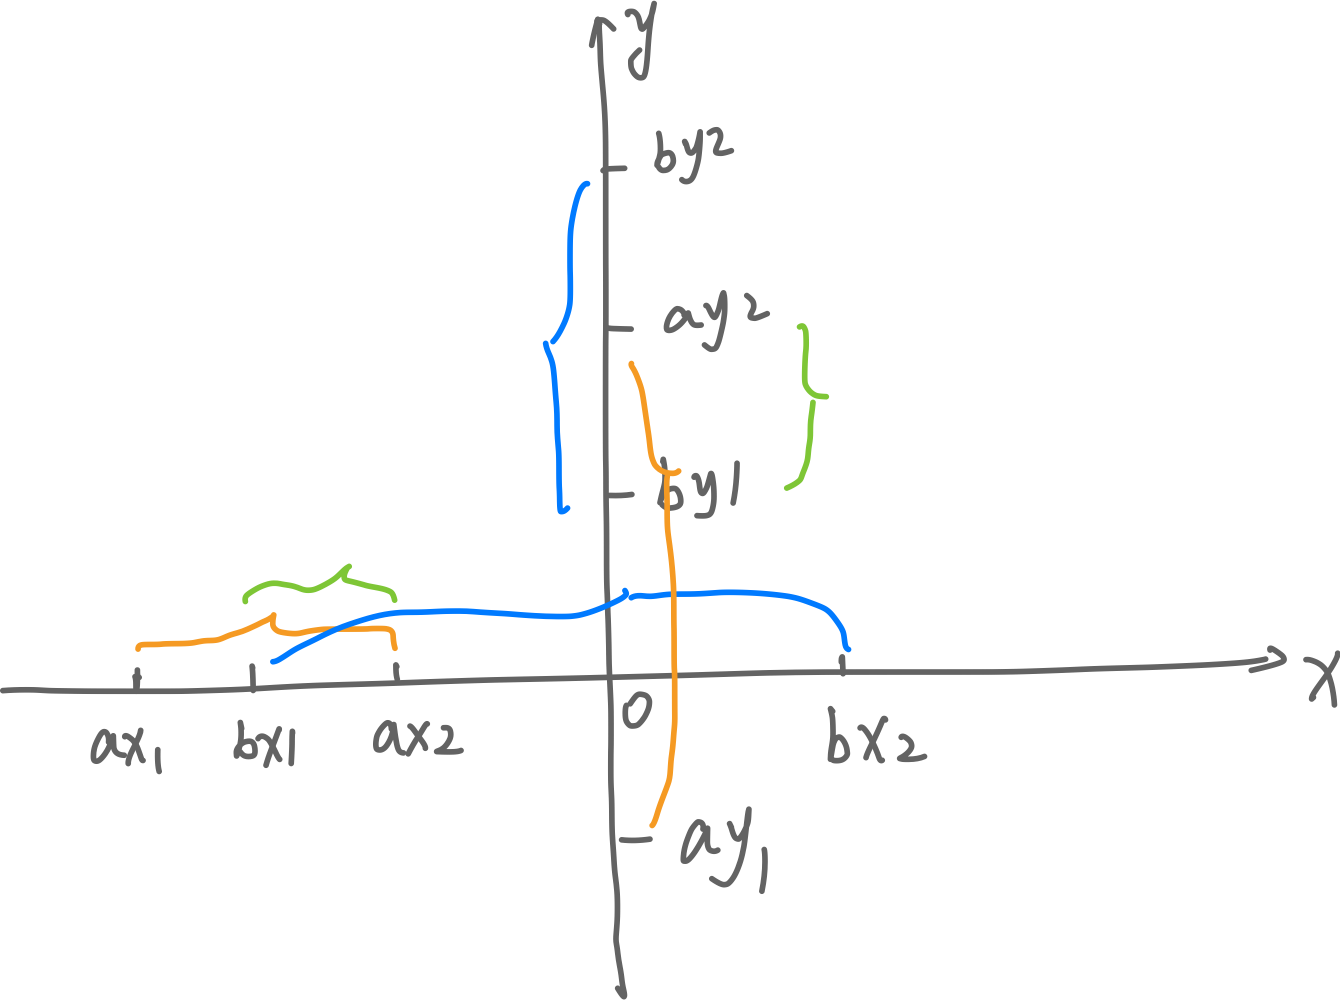 y
by2
ay2
by1
x
0
ax1
bx1
ax2
bx2
ay1